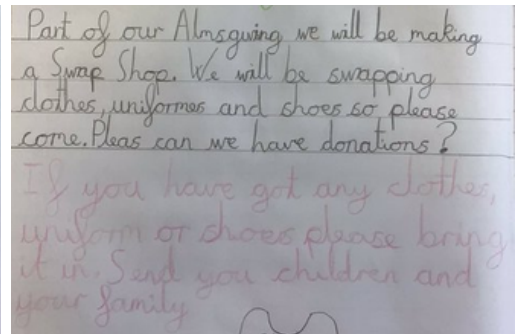 Part of our Almsgiving we will be making
a Swap Shop. We will be swapping
clothes, uniformes and shoes so please
come. Pleas can we have donations?
If you have got any clothes,
uniform or shoes please bring
it in. Send you children and
your family